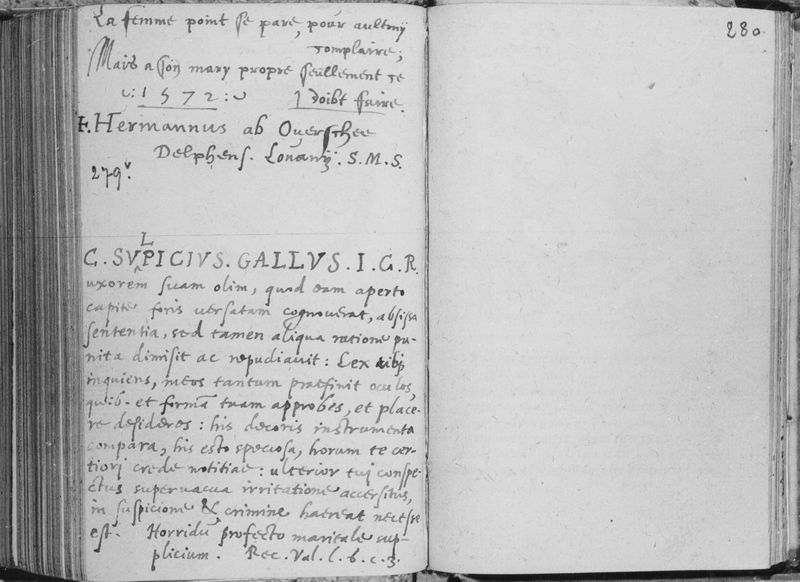 La femme point se pare, pour aultruÿ
complaire;
Mais a soŋ mary propre seullement ce
:1572: J doibt faire.
F. Hermannus ab Ouerschee
Delphens. Louanÿ. S.M.S.
279v.
L
C. SVPICIVS. GALLVS. I. C. R.
uxorem suam olim, quod eam aperto
capite foris versatam cognouerat, absissa
sententia, sed tamen aliqua ratione pu-
nita dimisit ac repudiauit: Lex tibj
inquiens, meos tantum praefinit oculos,
queib. et formā tuam approbes, et place-
re desideres: his decoris instrumenta
compara, his esto speciosa, horum te cer-
tiorj crede notitiae: ulterior tuj conspe-
ctus superuacua irritatione accersitus,
in suspicione & crimine haereat necesse
est. Horridū profecto maritale sup-
plicium. Rec. Val. l. 6. c. 3.
280